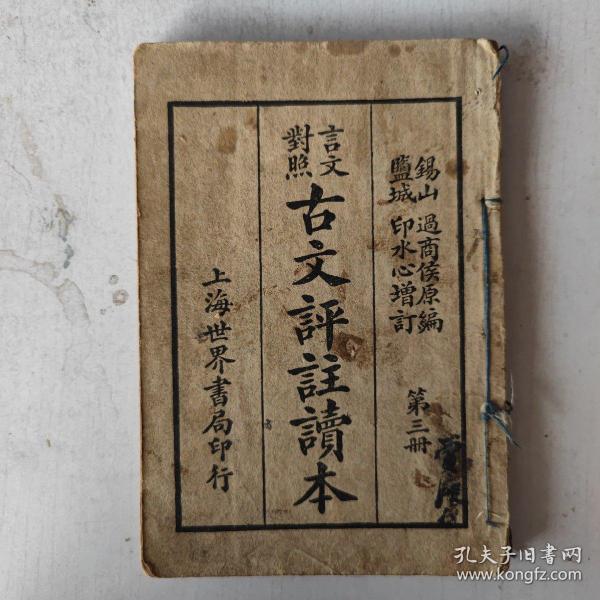 錫山 過商侯原編
鹽城 印水心增訂
第三册
言文
對照
古文評註讀本
上海世界書局印行
孔夫子旧书网
www.kongfz.com